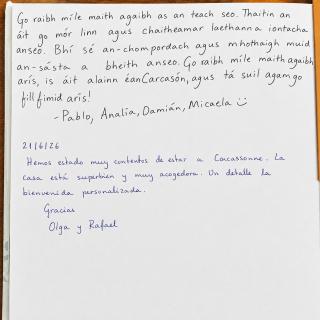 Go raibh míle maith agaibh as an teach seo. Thaitin an
áit go mór linn agus chaitheamar laethanna iontacha
anseo. Bhí sé an-chompordach agus mhothaigh muid
an-sásta a bheith anseo. Go raibh míle maith agaibh
arís, is áit alainn é an Carcasón, agus tá súil agam go
fillfimid arís!
- Pablo, Analía, Damián, Micaela
21/6/26
Hemos estado muy contentos de estar a Cacassonne. La
casa está superbien y muy acogedora. Un detalle la
bienvenida personalizada.
Gracias
Olga y Rafael